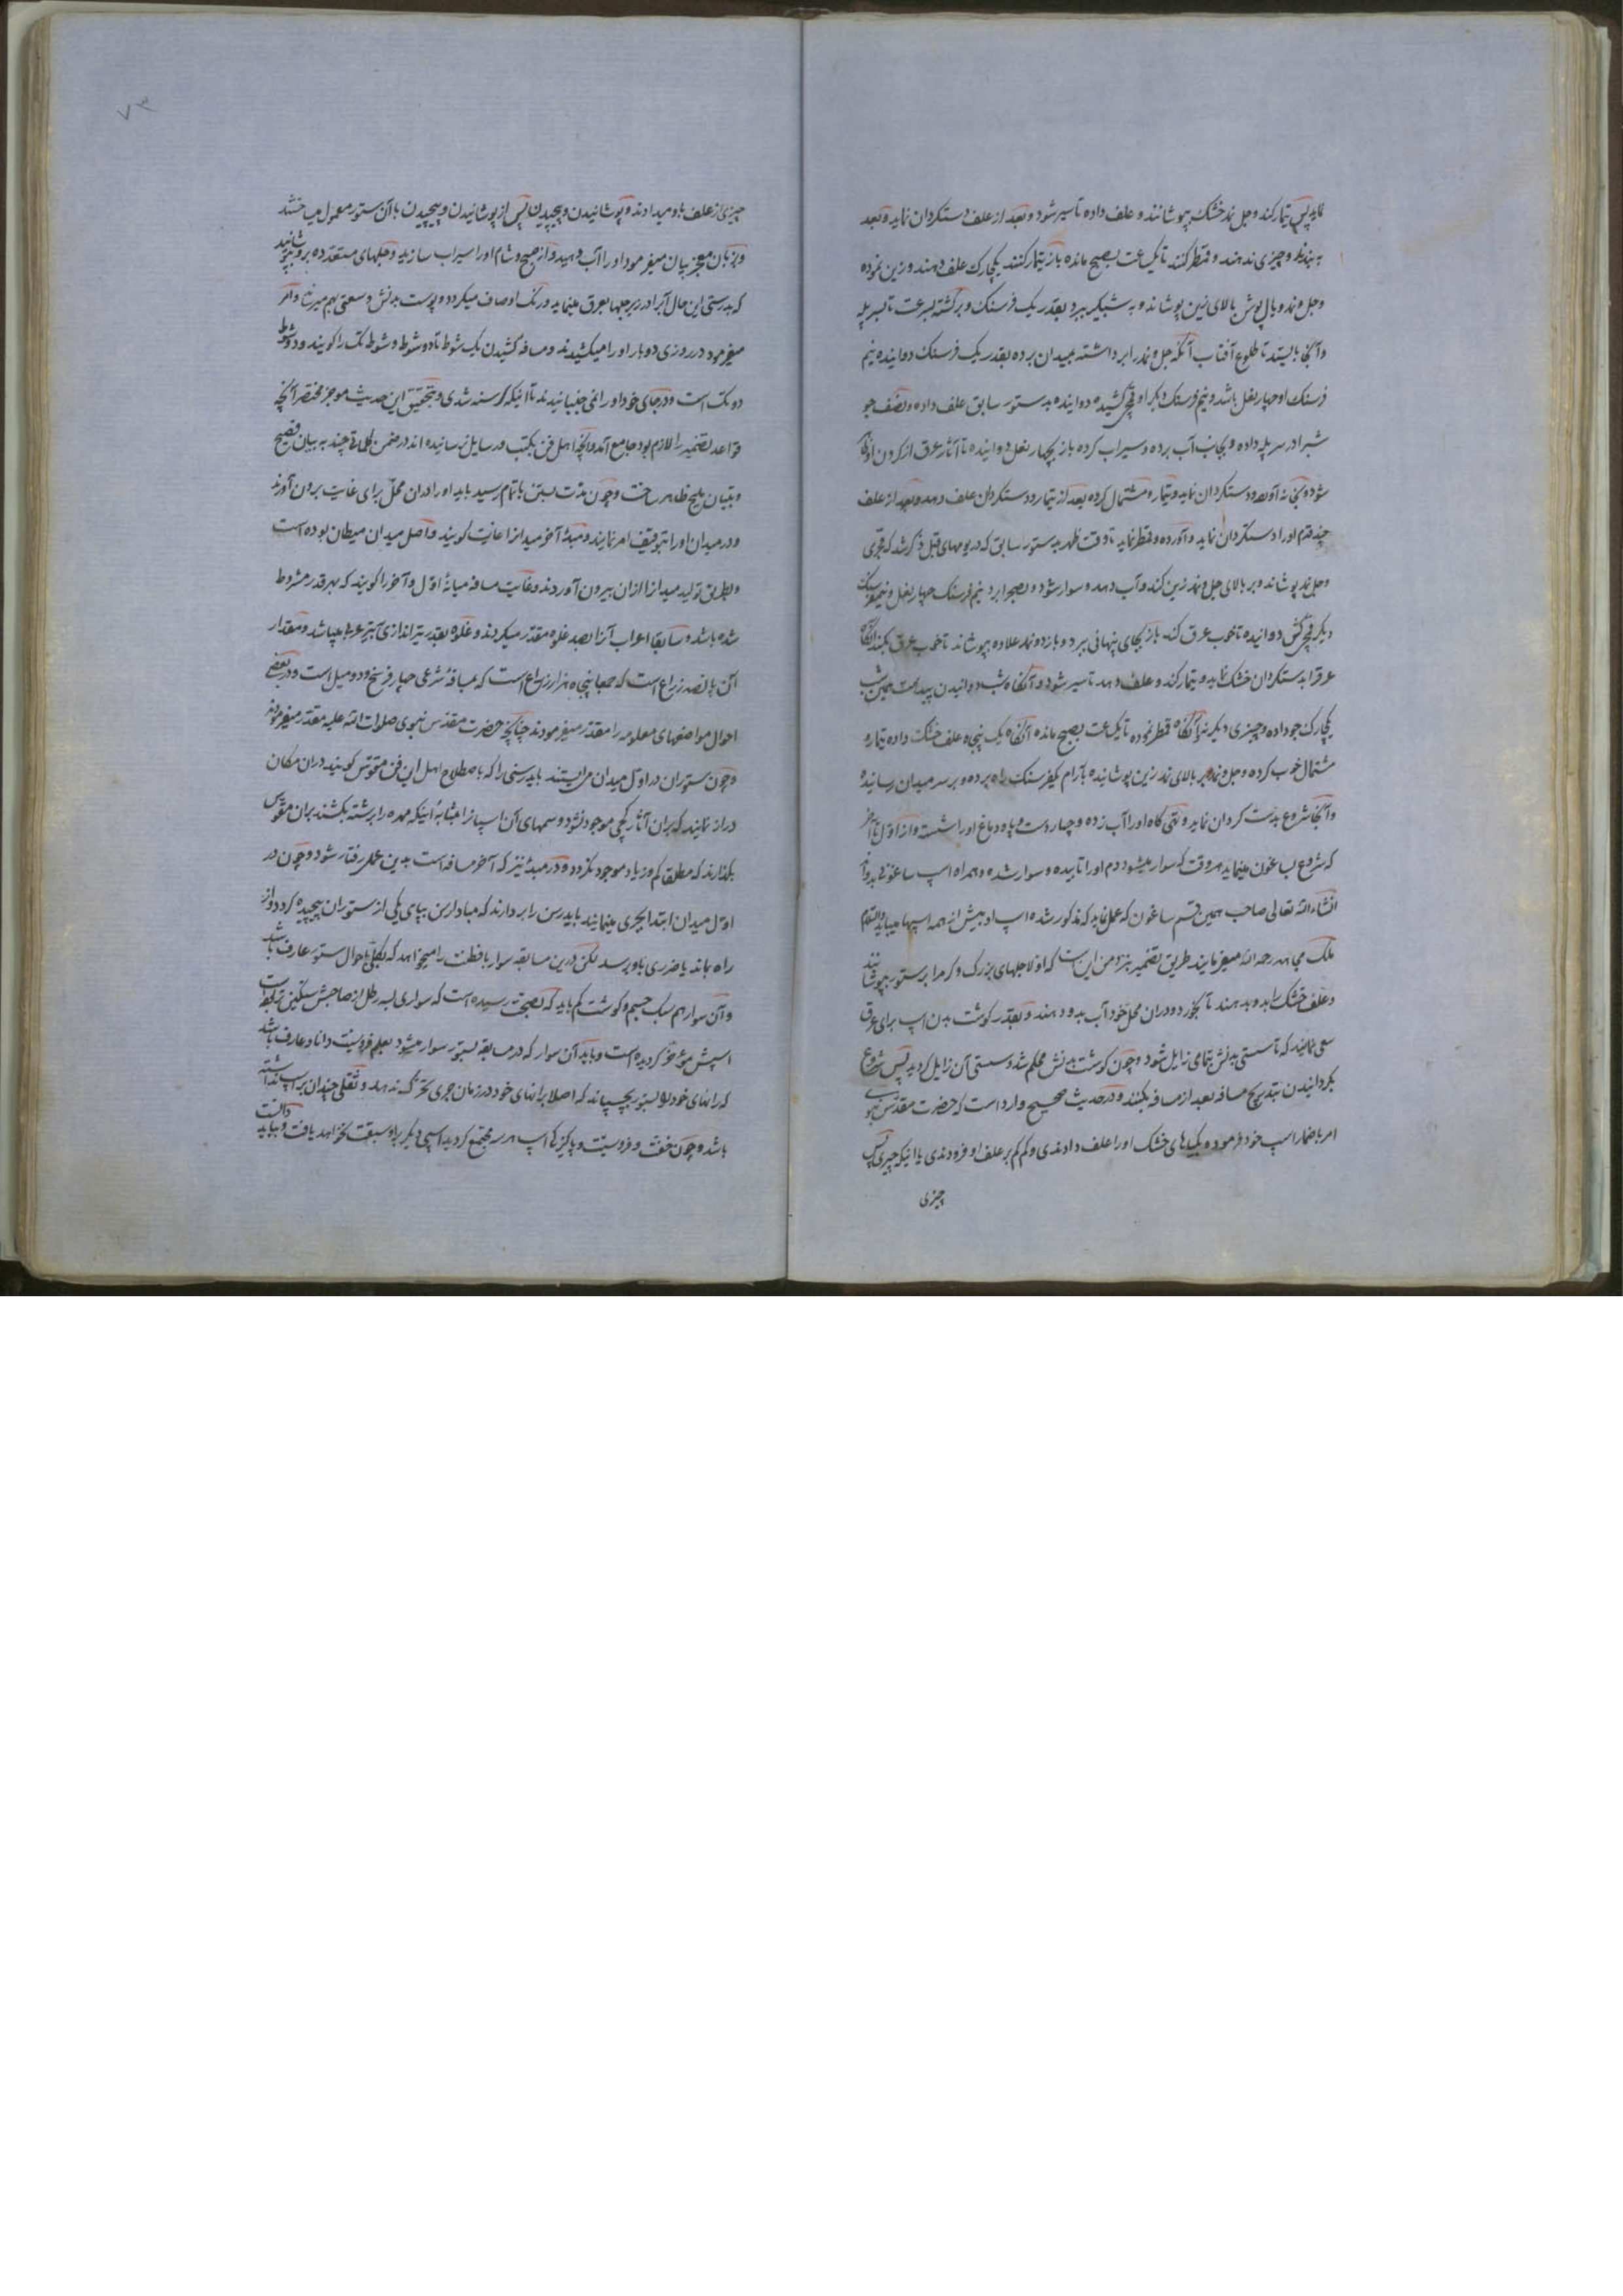 نماید پس تیمار کند و جل نمد خشک بپوشانند و علف داده تا سیر شود و بعد از علف دستکردان نماید و بعد
به بندند و چیزی ندهند و قنطر کنند تا یکساعت بصبح مانده باز تیمار کنند یکچارک علف دهند و زین نموده
و جل و نمد و بال پوش بالای زین پوشاند و به شبیکر ببرد بقدر یک فرسنک و برکشته بسرعت تا بسر پله
و آنجا بایستد تا طلوع آفتاب آنکه جل و نمد را برداشته بمیدان برده بقدر یک فرسنک دوانیده نیم
فرسنک او چهار نعل باشد و نیم فرسنک دیکر او قیچی کشیده دوانیده بدستور سابق علف داده و نصف جو
شبرا در سر پله داده و بجانب آب برده و سیراب کرده باز بچهار نعل دوانیده تا آثار عرق از کردن او ظاهر
شود و بخانه آورده دستکردان نماید و تیمار و مشتمال کرده بعد از تیمار و دستکردان علف دهد و بعد از علف
چند قدم او را دستکردان نماید و آورده و قنطر نماید تا وقت ظهر بدستور سابق که در یومهای قبل ذکر شد که
و جل نمد پوشاند و بر بالای جل و نمد زین کند و آب دهد و سوار شود و بصحرا برد نیم فرسنک چهار نعل و نیم فرسنک
دیکر قیچی کش دوانیده تا خوب عرق کند باز بجای پنهانی ببرد و باز دو نمد علاوه بپوشاند تا خوب عرق بکند آنکاه
عرق را بدستکردان خشک نماید و تیمار کند و علف دهد تا سیر شود و آنکاه شب دوانیدن پیداست همین شب
یکچارک جو داده و چیزی دیکر نه آنکاه قنطر نموده تا یکساعت بصبح مانده آنکاه یک پنجه علف خشک داده تیمار و
مشتمال خوب کرده و جل و نمد بر بالای نمد زین پوشانیده بآرام یکفرسنک راه برده و بر سر میدان رسانیده
و آنجا شروع بدست کردان نماید و تهی کاه او را آب زده و چهار دست و پا و دماغ او را شسته و از اول تا آخر
که شروع بساغون مینماید هر وقت که سوار میشود دم او را تابیده و سوار شده و همراه اسپ ساغونی بدواند
انشاء الله تعالی صاحب همین قسم ساغون که عمل نماید که مذکور شده اسپ او بیش از همه اسپها میاید والسلام
ملک مجاهد رحمه الله میفرمایند طریق تضمیر بنزد من این است که اولا جلهای بزرک و کرم را بر ستور بپوشانند
و علف خشک را بدو بدهند تا بخورد و دران محل خود آب بدو دهند و بقدر کوشت بدن اسپ برای عرق
سعی نمایند که تا سستی بدنش بتمامی زایل شود و چون کوشت بدنش محکم شد و سستی آن زایل کردید پس شروع
بکردانیدن بتدریج مسافه بعد از مسافه بکنند و در حدیث صحیح وارد است که حضرت مقدس نبوی
امر باضمار اسپ خود فرموده و بکیاهای خشک او را علف دادندی و کم کم بر علف او فزودندی یا اینکه چیزی پس
چیزی
۷۳
چیزی از علف باو میدادند و پوشانیدن و پیچیدن پس از پوشانیدن و پیچیدن با آن ستور معمول میداشتند
و بزبان معجز بیان میفرمود او را آب دهید و از صبح و شام او را سیراب سازید و جلهای متعدده برو بپوشانید
که بدرستی این حال آنرا در زیر جلها بعرق مینماید و رنک او صاف میکردد و پوست بدنش وسعتی بهم میرساند و امر
میفرمود در روزی دو بار او را میکشیدند و مسافه کشیدن یک شوط تا دو شوط و شوط تک را کویند و دو شوط
دو تک است و در جای خود او را نمی جنبانیدند تا اینکه کرسنه شدی و بتحقیق این حدیث موجز مختصر آنچه
قواعد تضمیر را لازم بود جامع آمد و آنچه اهل فن بکتب و رسایل رسانیده اند در ضمن کلماتی چند به بیان فصیح
و بتبیان ملیح ظاهر ساخت و چون مدت بستن باتمام رسید باید او را دران محل برای غایت برون آورند
و در میدان او را بتوقیف امر نمایند و مبدأ آخر میدان را غایت کویند و اصل میدان میطان بوده است
و بطریق تولید میدان را ازان بیرون آوردند و غایت مسافه میانه اول و آخر را کویند که بهر قدر مشروط
شده باشد و سابقا اعراب آنرا بصد غلوه مقدر میکردند و غلوه بقدر تیراندازی میباشد و مقدار
آن پانصد زراع است که جمعا پنجاه هزار زراع است که بمسافهٔ شرعی چهار فرسخ و دو میل است و در بعضی
احوال مواضعهای معلومه را مقدر میفرمودند چنانچه حضرت مقدس نبوی صلوات الله علیه مقدر میفرمودند
و چون ستوران در اول میدان می ایستند باید رسنی را که باصطلاح اهل این فن مقوس کویند دران مکان
دراز نمایند که بران آثار کجی موجود نشود و سمهای آن اسپان را بمثابهٔ اینکه مهره را برشته بکشند بران مقوس
بکذارند که مطلق کم و زیاد موجود نکردد و در مبدأ نیز که آخر مسافه است بدین عمل رفتار شود و چون در
اول میدان ابتدا بجری مینمایند باید رسن را بردارند که مبادا رسن بپای یکی از ستوران پیچیده کردد و از
راه بماند یا ضرری باو برسد لکن درین مسابقه سوار با فطنت را میخواهد که بکل احوال ستور عارف باشد
و آن سوار هم سبک جسم و کوشت کم باید که بصحت رسیده است که سواری بسه رطل از صاحبش سنکین تر بود
اسپش مؤخر کردیده است و باید آن سوار که در مسابقه بستور سوار میشود بعلم فروسیت دانا و عارف باشد
که رانهای خود را بستور بچسپاند که اصلا برانهای خود در زمان جری تحرک ندهد و ثقلی چندان بر اسپ نداشته
باشد و چون خفت و فروسیت و پاکیزکی اسپ هر سه مجتمع کردید اسپی دیکر براو سبقت نخواهد یافت و بباید دانست